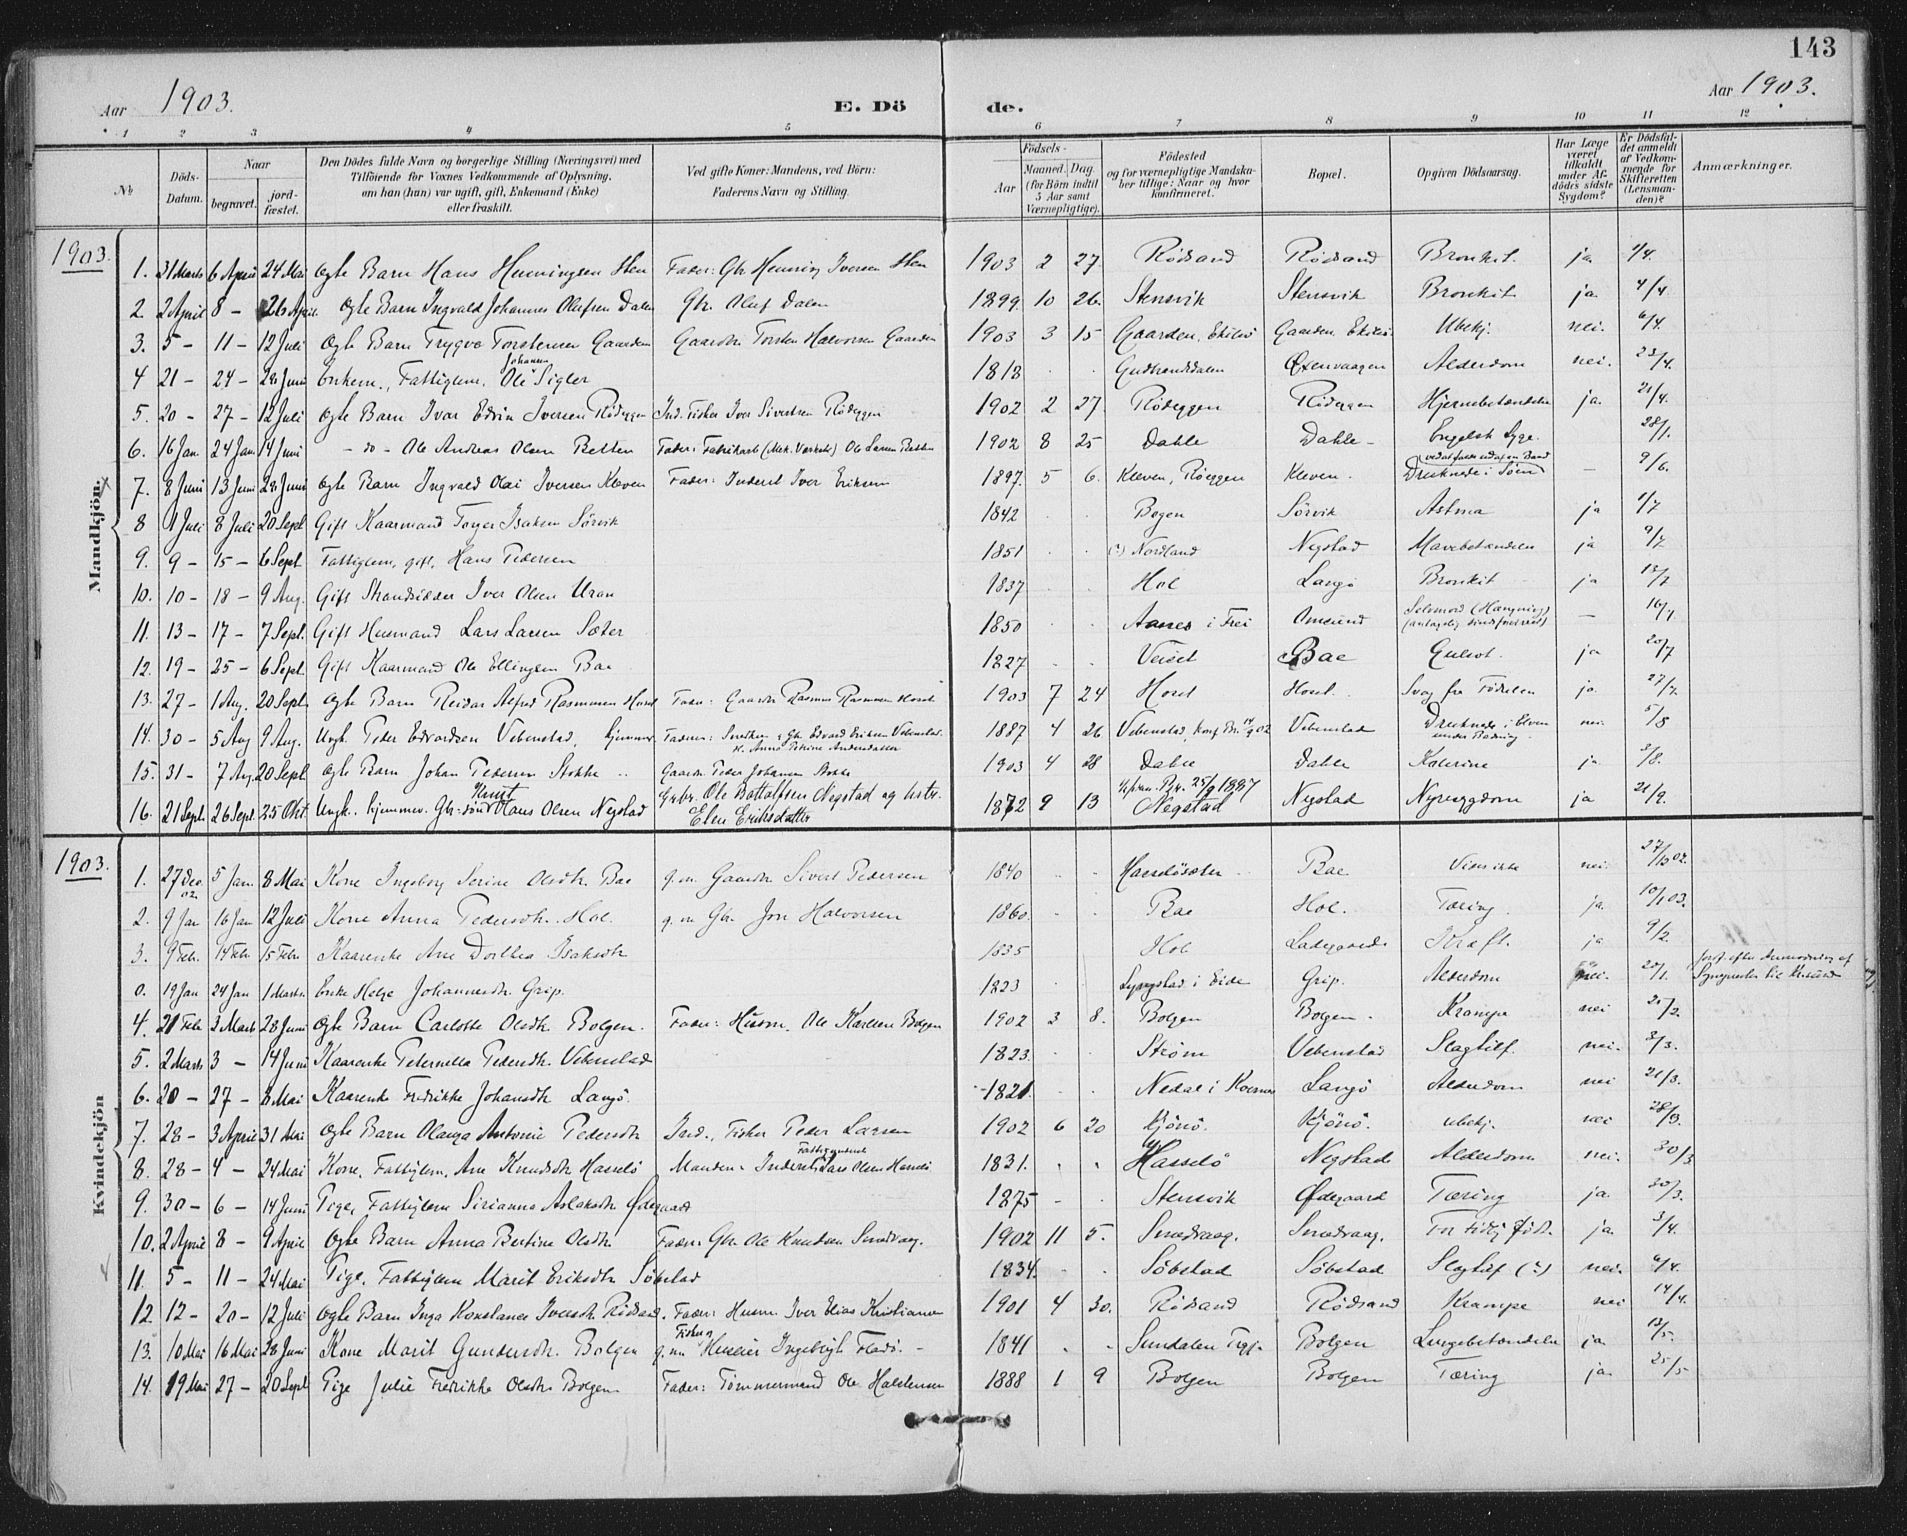 143
Aar 1903. E. Dö de. Aar 1903.
1 2 3 4 5 6 7 8 9 10 11 12
No. Döds-Datum. Naar begravet. jord-fæstet. Den Dödes fulde Navn og borgerlige Stilling (Næringsvei) med Tilföiende for Voxnes Vedkommende af Oplysning, om han (hun) var ugift, gift, Enkemand (Enke) eller fraskilt. Ved gifte Koner: Mandens, ved Börn: Faderens Navn og Stilling. Födsels- Aar Maaned. Dag. (for Börn indtil 5 Aar samt Værnepligtige). Födested og for værnepligtige Mandskaber tillige: Naar og hvor konfirmeret. Bopæl. Opgiven Dödsaarsag. Har Læge været tilkaldt under Afdödes sidste Sygdom? Er Dödsfaldet anmeldt af Vedkommende for Skifteretten (Lensmanden)? Anmærkninger.
1903.
Mandkjön.
1. 31 Marts 6 April 24 Mai Ægte Barn Hans Henningsen Sten Fader: Gbr. Henning Iversen Sten 1903 2 27. Rödsand Rödsand Bronkit. ja 1/4.
2 2 April 8 – 26 April Ægte Barn Ingvald Johannes Olufsen Dalen Gbr. Oluf Dalen 1899. 10 26. Stensvik Stensvik Bronkit ja 4/4
3. 5 – 11 – 12 Juli Ægte Barn Trygve Torstensen Gaarden Gaardbr. Torsten Halvorsen Gaarden 1903 3 15 Gaarden, Ekilsö Gaarden, Ekilsö Ubekj. nei. 6/4.
4 21 – 24 – 28 Juni Enkem., Fattiglem. Ole Johannes Sigler 1818 Gudbrandsdalen Øxenvaagen Alderdom nei. 23/4.
5. 20 – 27 – 12 Juli Ægte Barn Ivar Edvin Iversen Rödeggen Ind. Fisker Iver Sivertsen Rödeggen 1902 2 27. Rödeggen Rödeggen Hjernebetændelse ja. 21/4.
6. 16 Jan. 24 Jan. 14 Juni – do – Ole Andreas Olsen Betten Fader: Fabrikarb. (Mek. Værksted) Ole Larsen Betten 1902 8 25 Dahle Dahle – Engelsk Syge. 28/1.
7. 8 Juni 13 Juni 28 Juni Ægte Barn Ingvald Olai Iversen Kleven Fader: Inderst Iver Eriksen 1897. 5 6. Kleven, Röeggen Kleven. Druknede i Söen ved at falde ud af en Baad – 9/6.
8 1 Juli 8 Juli 20 Sept. Gift Kaarmand Torger Isaksen Sörvik 1842 Bogen Sörvik Astma ja 1/7
9. 9 – 15 – 6 Sept. Fattiglem, gift, Hans Pedersen 1851 (?) Nordland Negstad Mavebetændelse ja 9/7
10. 10 – 18 – 9 Aug. Gift Strandsidder Iver Olsen Uran 1837 Hol Langö Bronkit ja 12/7
11. 13 – 17 – 7 Sept. Gift Husmand Lars Larsen Sæter 1850 Aasnes i Frei Omsund Selvmord (Hængning) (antagelig sindsforvirret) – 16/7
12. 19 – 25 – 6 Sept. Gift Kaarmand Ole Ellingsen Bae 1827 Veiset Bae Gulsot. ja 20/7
13. 27 – 1 Aug. 20 Sept. Ægte Barn Reidar Alfred Rasmussen Hoset Fader: Gaardbr. Rasmus Rasmussen Hoset 1903 7 24 Hoset Hoset. Svag fra Födselen ja. 27/7.
14. 30 – 5 Aug 9 Aug. Ungk. Peder Edvardsen Vebenstad, hjemmev. Fader: Snedker & Gbr. Edvard Eriksen Vebenstad. H. Anne Petrine Andersdatter 1887 4 26 Vebenstad, Konf. Br. 14/9 02 Vebenstad Druknede i Elven under Badning. nei. 5/8
15. 31 – 7 Aug. 20 Sept. Ægte Barn Johan Pedersen Stokke Gaardbr. Peder Johansen Stokke 1903 4 28 Dahle Dahle Kolerine ja 3/8.
16. 21 Sept. 26 Sept. 25 Okt. Ungk. hjemmev. Gbr.-sön Knut Hans Olsen Negstad Gubr. Ole Bottolfsen Negstad og hstr. Elen Eriksdatter 1872 9 13 Kfrm. Br. 25/9 1887 Negstad Negstad Nyresygdom ja 21/9.
1903.
Kvindekjön
1. 27 Dec. 02 5 Jan. 8 Mai Kone Ingeborg Serine Olsdtr. Bae g. m. Gaardbr. Sivert Pedersen 1840 Hasselösæter Bae Vides ikke nei. 27/12 02.
2. 9 Jan 16 Jan 12 Juli Kone Anna Pedersdtr. Hol. g. m. Gbr. Jon Halvorsen 1860. Bae Hol. Tæring ja. 10/1 03.
3. 9 Febr. 14 Febr. 15 Febr. Kaarenke Ane Dorthea Isaksdtr. 1835 Hol Ladegaard Kræft. ja 9/2
0. 19 Jan 24 Jan 1 Marts Enke Helga Johannesdtr. Grip. 1823 Lyngstad i Eide Grip. Alderdom nei. 20/1. Jordf. efter Anmodning af Sogneprsten til Krsund
4. 21 Febr. 3 Marts 28 Juni Ægte Barn Carlotte Olsdtr. Bolgen. Fader: Husm. Ole Karlsen Bolgen 1902 3 8. Bolgen Bolgen. Krampe nei 21/2.
5. 2 Marts 3 – 14 Juni Kaarenke Peternella Pedersdtr. Vebenstad 1823. Ström Vebenstad Slagtilf. nei. 3/3.
6. 20 – 27 – 8 Mai Kaarenke Fredrikke Johansdtr. Langö. 1821. Nedal i Kvernes Langö Alderdom nei 21/3.
7. 28 – 3 April 31 Mai Ægte Barn Olanga Antonie Pedersdtr. Ind., Fisker Peder Larsen 1902 6 20 Kjönö. Kjönö. ubekj. nei 28/3.
8. 28 – 4 – 24 Mai Kone, Fattiglem, Ane Knudsdtr. Hasselö Manden: Inderst, Fattigunderst. Lars Olsen Hasselö 1831. Hasselö Negstad Alderdom nei. 30/3
9. 30 – 6 – 14 Juni Pige, Fattiglem Sirianna Aslaksdtr. Ødegaard 1875 Stensvik Ødegaard Tæring ja. 30/3.
10. 2 April 8 – 9 April Ægte Barn Anna Bertine Olsdtr. Fader: Gbr. Ole Knudsen Smedvaag. 1902 11 5. Smedvaag. Smedvaag. For tidlig födt. ja. 3/4.
11. 5 – 11 – 24 Mai Pige. Fattiglem Marit Eriksdtr. Söbstad 1834. Söbstad Söbstad Slagtilf (?) nei. 6/4.
12. 12 – 20 – 12 Juli Ægte Barn Inga Konstance Iversdtr. Rödsand. Fader: Husm. Iver Elias Kristiansen 1901 4 30. Rödsand Rödsand Krampe nei 14/4.
13. 10 Mai 16 Mai 28 Juni Kone Marit Gundersdtr. Bolgen g. m. Fisker og Huseier Ingebrigt Flatö. 1841 Sundalen Bolgen Lungebetændelse ja 12/5.
14. 19 Mai 27 – 20 Sept Pige Julie Fredrikke Olsdtr. Bolgen Fader: Tømmermand Ole Halstensen 1888 1 9 Bolgen Bolgen Tæring ja. 25/5